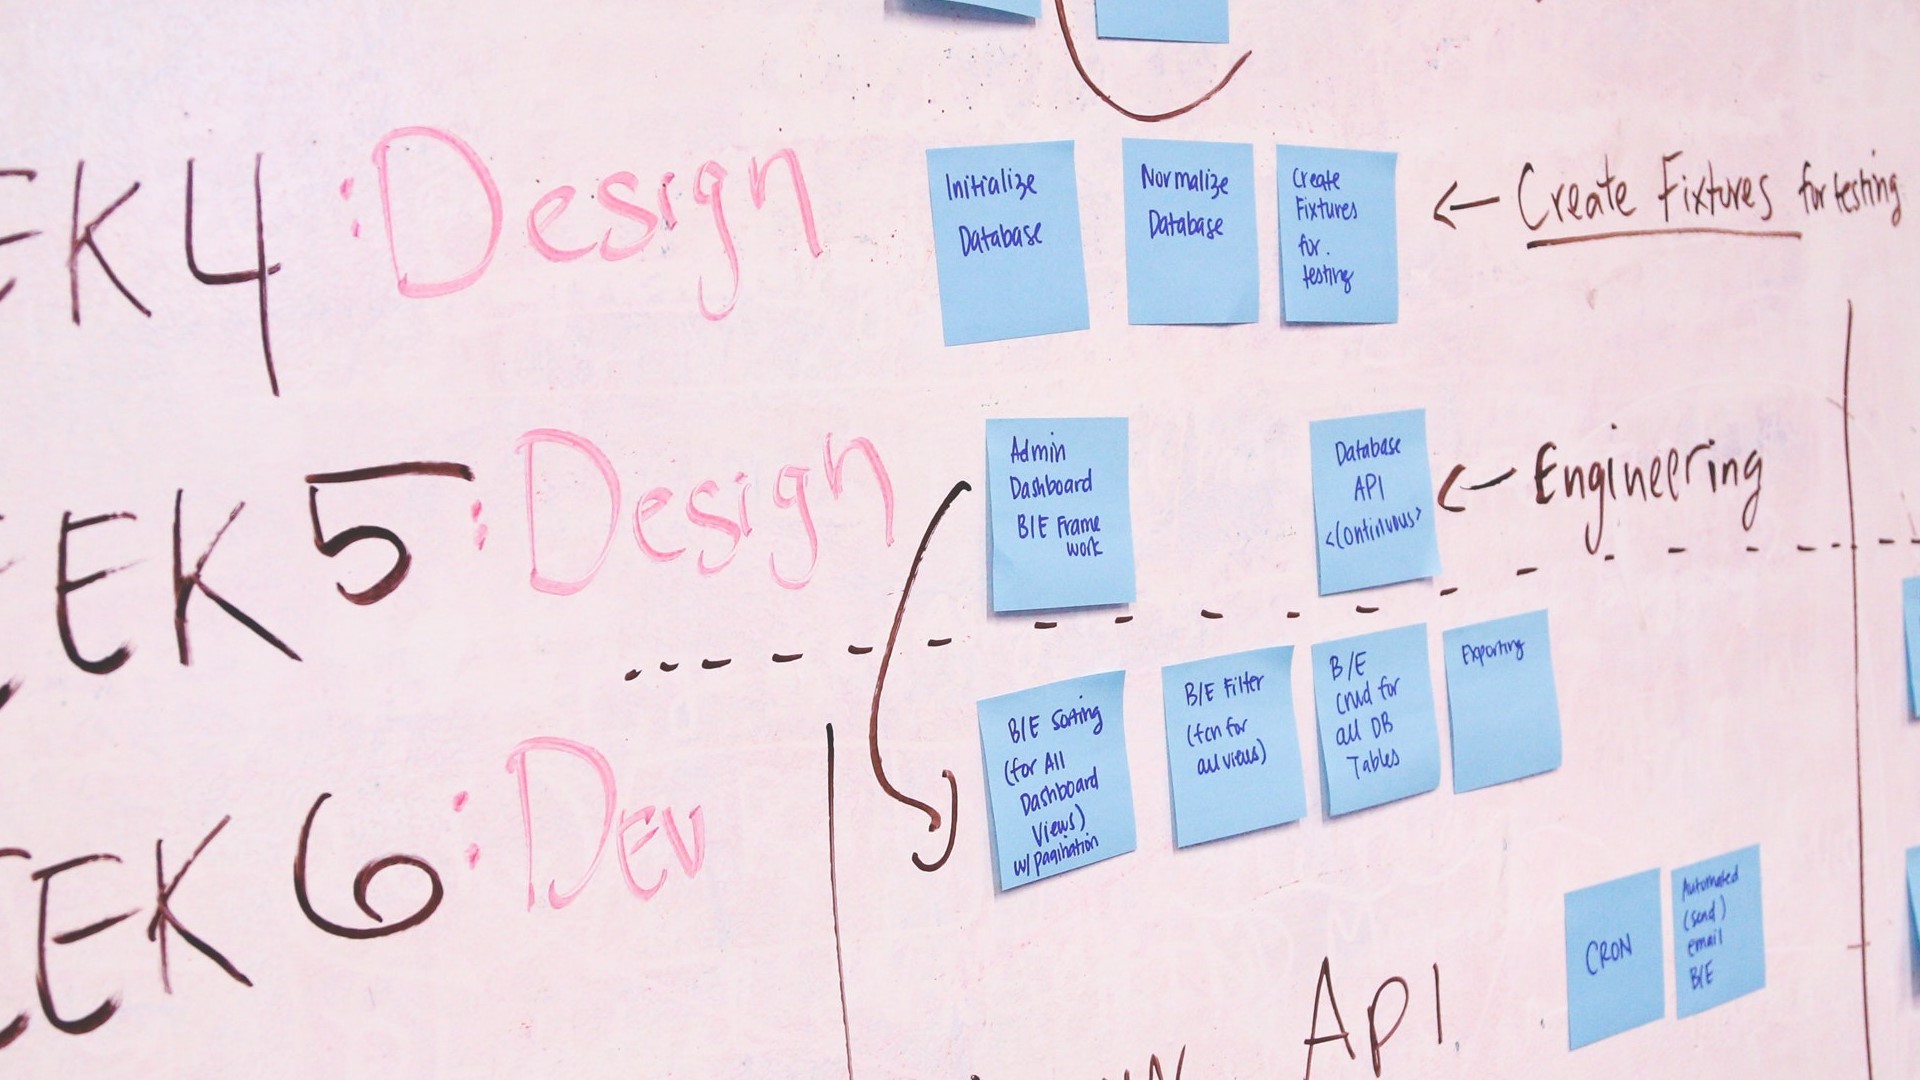 EK 4 : Design
Initialize
Database
Normalize
Database
Create
Fixtures
for.
testing
← Create Fixtures for testing
EEK 5 : Design
Admin
Dashboard
B/E Frame
work
Database
API
<continuous>
← Engineering
EEK 6 : DEV
B/E Sorting
(for All
Dashboard
Views)
w/ pagination
B/E Filter
(fcn for
all views)
B/E
crud for
all DB
Tables
Exporting
CRON
Automated
(send)
email
B/E
API